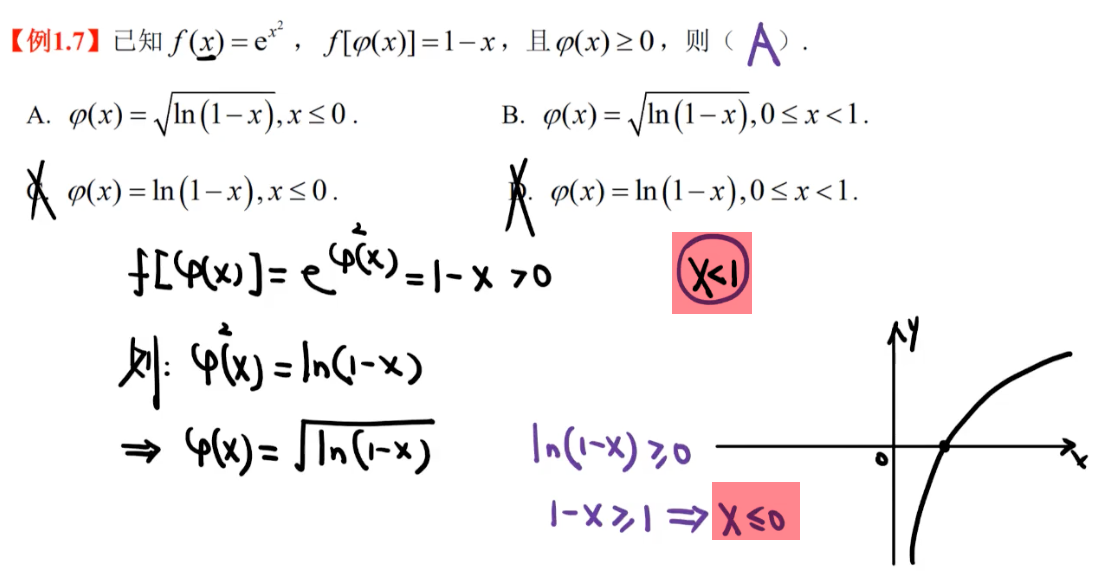 【例1.7】已知 f(x)=e^{x^2}，f[φ(x)]=1-x，且φ(x)≥0，则（ A ）.
A. φ(x)=√(ln(1-x)), x≤0. B. φ(x)=√(ln(1-x)), 0≤x<1.
C. φ(x)=ln(1-x), x≤0. D. φ(x)=ln(1-x), 0≤x<1.
f[φ(x)]=e^{φ^2(x)}=1-x>0 x<1
则: φ^2(x)=ln(1-x)
⇒ φ(x)=√(ln(1-x))
ln(1-x)≥0
1-x≥1⇒x≤0
y
0
x